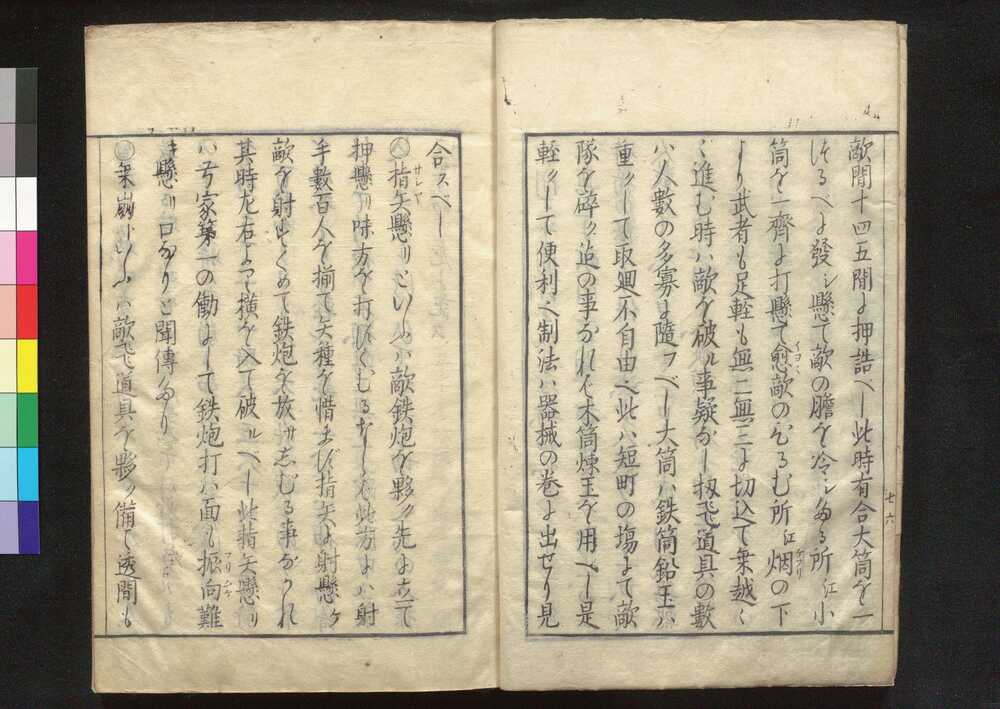 敵間十四五間ニ押詰ベし此時有合大筒を一
ツるべニ發シ懸て敵の膽を冷シめる所江小
筒を一齊ニ打懸て愈敵のひるむ所江烟の下
イヨ〱
ケブリ
より武者も足軽も無二無三ニ切込て乗越〱
〱進む時ハ敵を破ル事疑なし扨飛道具の數
ハ人數の多寡ニ隨フべし大筒ハ鉄筒鉛玉ハ
重クして取廻不自由也此ハ短町の場にて敵
隊を碎ク迠の事なれハ木筒煉玉を用べし是
軽クして便利也制法ハ器械の巻ニ出せり見
七六
合スべし
㊅指矢懸リといふハ敵鉄炮を夥ク先ニ立て
サシヤ
押懸リ味方を打すくむるならバ此方にハ射
手數百人を揃て矢種を惜まず指矢ニ射懸ケ
敵を射すくめて鉄炮を放サしむる事なかれ
其時左右より横を入て破ルべし此指矢懸リ
ハ弓家第一の働ニして鉄炮打ハ面も振向難
フリムケ
キ懸リ口なりと聞傳たり
乗崩といふハ敵飛道具を夥ク備て透間も